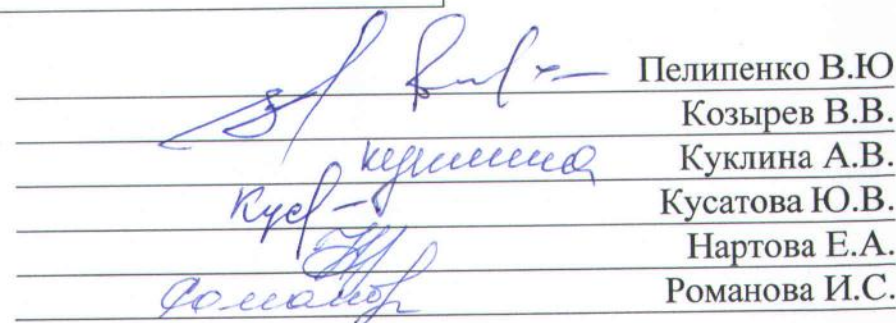 Пелипенко В.Ю
Козырев В.В.
куклина Куклина А.В.
Кус Кусатова Ю.В.
Нартова Е.А.
Романова И.С.